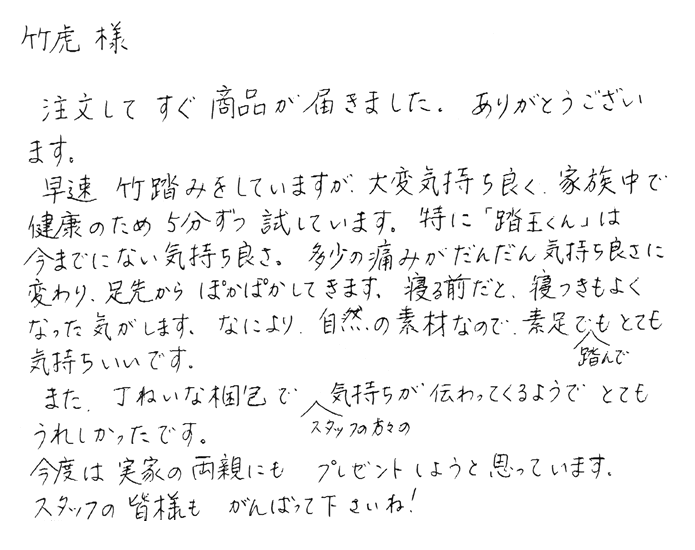 竹虎 様
注文して すぐ 商品が 届きました。 ありがとうござい
ます。
早速 竹踏みをしていますが、大変気持ち良く、家族中で
健康のため 5分ずつ 試しています。 特に「踏王くん」は
今までにない気持ち良さ。 多少の痛みが だんだん 気持ち良さに
変わり、足先から ぽかぽかしてきます。 寝る前だと、寝つきもよく
なった気がします。 なにより、自然の素材なので、素足でも とても
踏んで
気持ちいいです。
また、丁ねいな梱包で 気持ちが 伝わってくるようで とても
スタッフの方々の
うれしかったです。
今度は 実家の両親にも プレゼントしようと思っています。
スタッフの 皆様も がんばって下さいね!